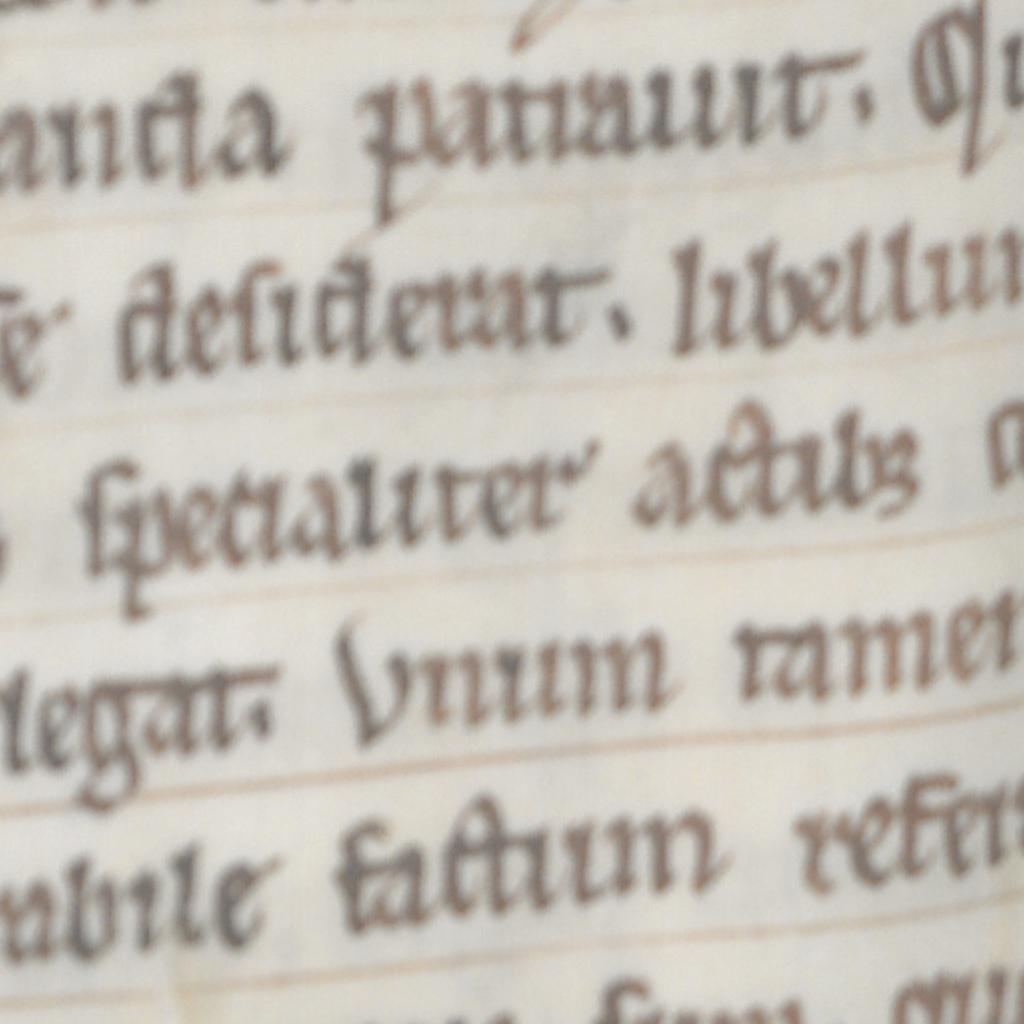 patrauit. Qu
desiderat. libellum
specialiter actibꝫ
legat. Vnum tamen
abile factum refer